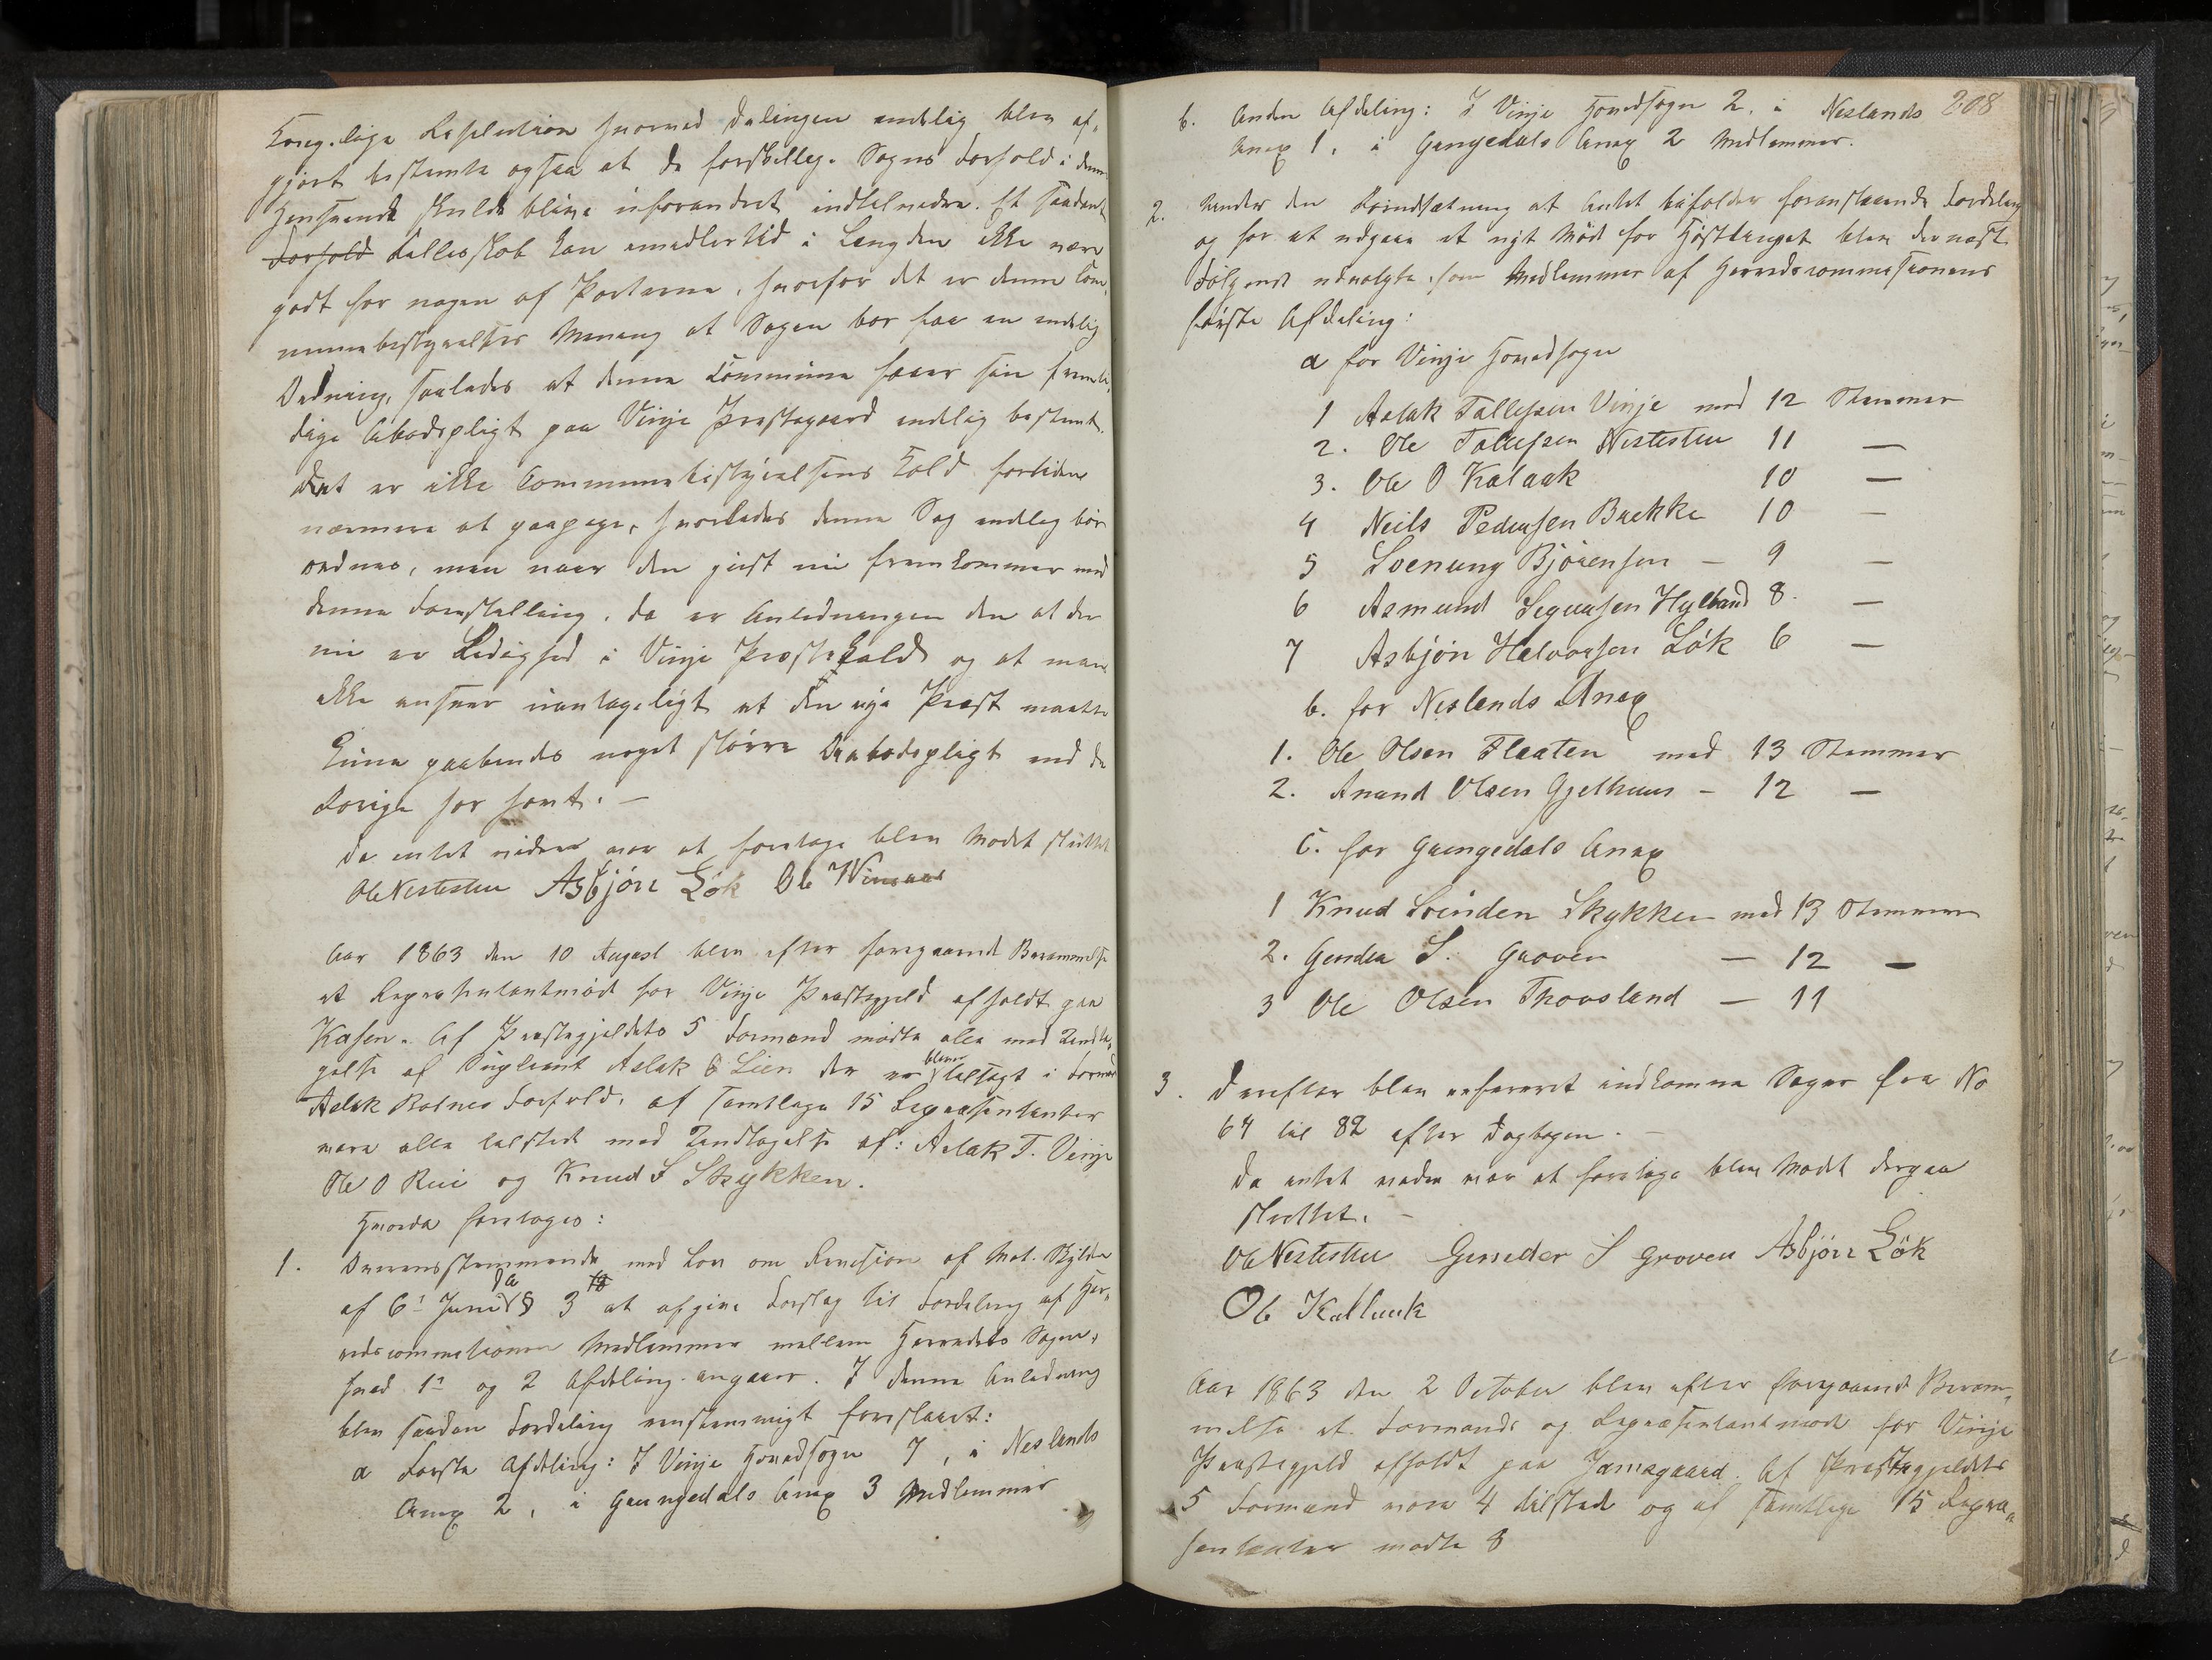 Kongelige Resolution hvorved Delingen endelig blev af-
gjort bestemte ogsaa at de forskjellige Sognes Forhold i denne
Henseende skulde blive uforandret indtilvidere. Et saadant
Forhold Fællesskab kan imidlertid i Længden ikke være
godt for nogen af Parterne, hvorfor det er denne Com-
munebestyrelses Mening at Sagen bør faae en endelig
Ordning, saaledes at denne Commune faaer sin fremti-
dige Aabodspligt paa Vinje Præstegaard endelig bestemt.
Det er ikke Communebestyrelsens Kald fortiden
nærmere at paapege, hvorledes denne Sag endlig bør
ordnes, men naar den just nu fremkommer med
denne Forestilling, da er Anledningen den at der
nu er Ledighed i Vinje Præstekald og at man
ikke anseer antageligt at den nye Præst maatte
kunne paabendes noget større Aabodspligt end de
Forige har havt. —
Da intet videre var at foretage blev Mødet sluttet
Ole Nestestu Asbjørn Løk Ole Vinsaas
Aar 1863 den 10 August blev efter foregaaende Berammelse
et Repræsentantmøde for Vinje Præstegjeld afholdt paa
Kasen. Af Præstegjeldets 5 Formænd mødte alle med Undta-
gelse af Supleant Aslak O Lien der blev tilsagt i Formand
Aslak Botnes Forfald. af samtlige 15 Repræsentanter
vare alle tilstede med Undtagelse af: Aslak T. Vinje
Ole O Rui og Knud S Skykken.
Hvorda foretoges:
1. Overensstemmende med Lov om Revision af Mat. Skylden
af 6te Juni d a § 3 at afgive Forslag til Fordeling af Her-
redscommissionens Medlemmer mellem Herredets Sogne,
hvad 1ste og 2 Afdeling angaaer. I denne Anledning
blev saadan Fordeling enstemmigt foreslaaet:
a Første Afdeling: I Vinje Hovedsogn 7, i Neslands
Anex 2, i Grungedals Anex 3 Medlemmer
208
b. Anden Afdeling: I Vinje Hovedsogn 2, i Neslands
Anex 1, i Grungedals Anex 2 Medlemmer.
2. Under den Forudsætning at Amtet bifalder foranstaaende Fordeling
og for at undgaae et nyt Møde for Høsttinget blev dernæst
Følgende udvalgte som Medlemmer af Herredscommissionens
første Afdeling:
a for Vinje Hovedsogn
1 Aslak Tallefsen Vinje med 12 Stemmer
2. Ole Tallefsen Nestestu 11 —
3. Ole O Kalaak 10 —
4 Neils Pedersen Brekke 10 —
5 Svenung Bjørensen - 9 —
6 Asmund Sigursen Hylland 8. —
7 Asbjøn Halvorsen Løk 6 —
b. for Neslands Anex
1. Ole Olsen Flaaten med 13 Stemmer
2. Anund Olsen Gjelhuus - 12 —
C. for Grungedals Anex
1 Knud Svenden Skykken med 13 Stemmer
2. Gunder S. Groven — 12 —
3 Ole Olsen Thovsland — 11
3. Derefter blev refereret indkomne Sager fra No
64 til 82 efter Dagbogen. —
Da intet videre var at foretage blev Mødet derpaa
sluttet. —
Ole Nestestu Gunder S Groven Asbjørn Løk
Ole Kallaak
Aar 1863 den 2 October blev efter foregaaende Beram-
melse et Formands og Repræsentantmøde for Vinje
Præstegjeld afholdt paa Jamsgaard. Af Præstegjeldets
5 Formænd vare 4 tilstede og af samtlige 15 Repræ-
sentanter mødte 8